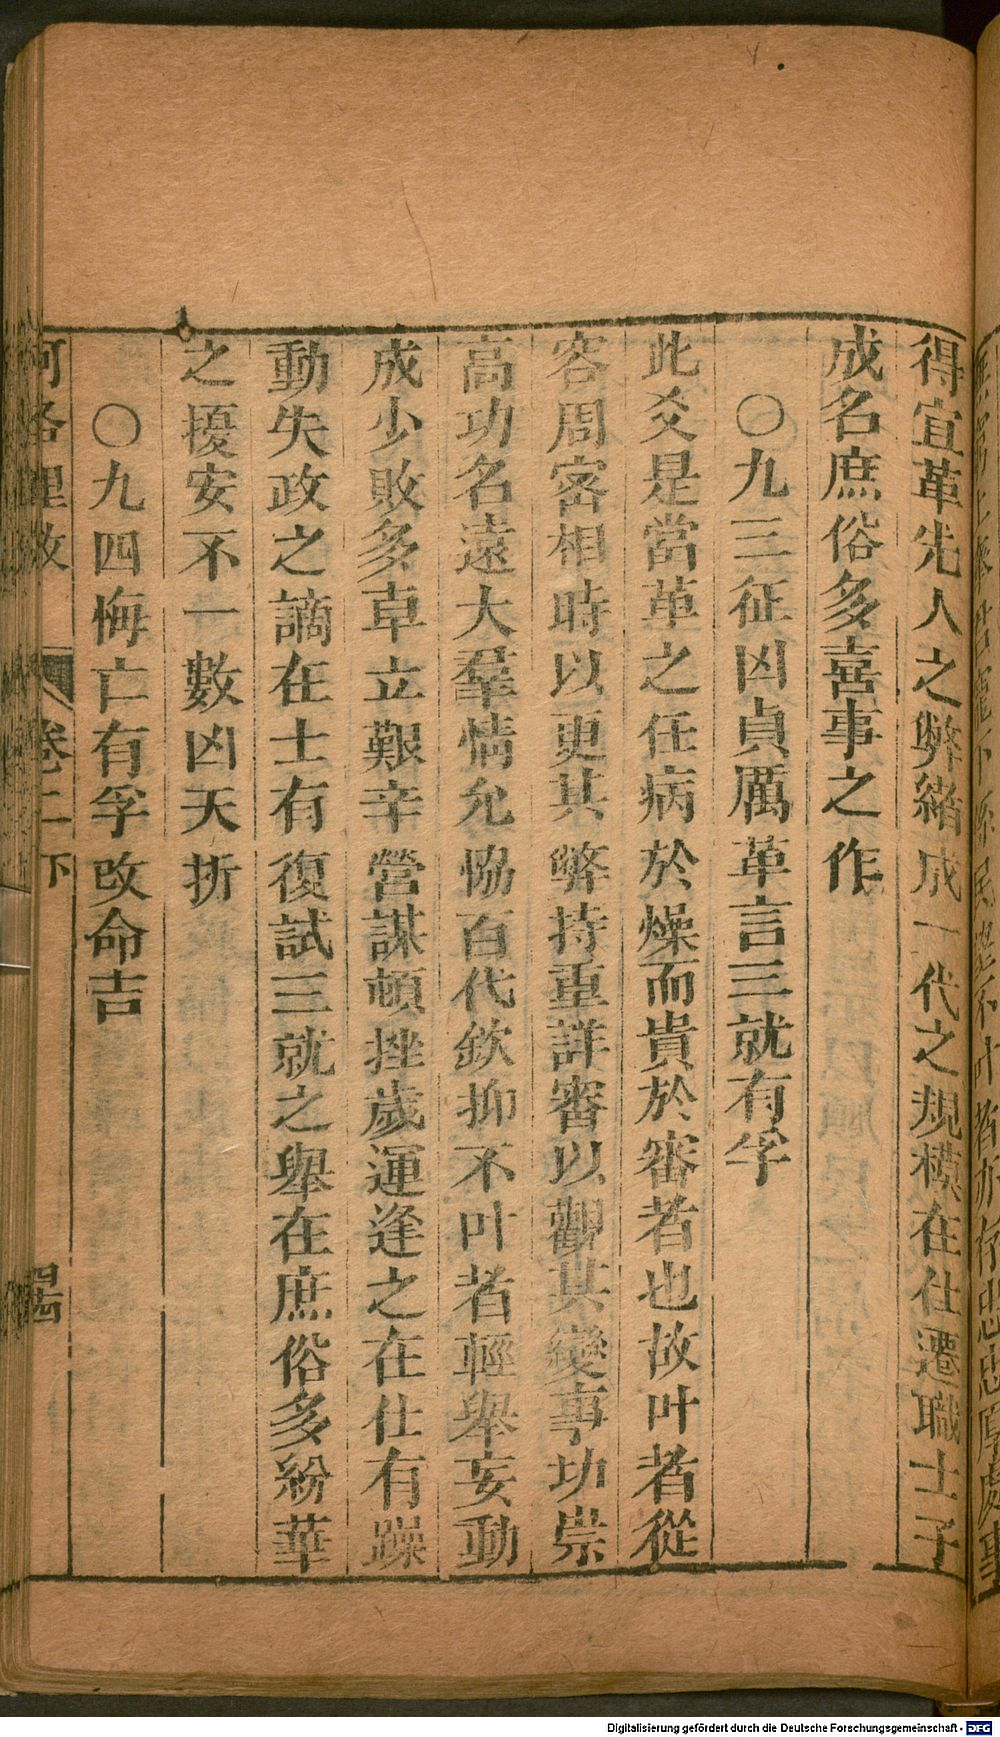 得宜革先人之弊緒成一代之規模在仕遷職士子
成名庶俗多喜事之作
〇九三征凶貞厲革言三就有孚
此爻是當革之任病於燥而貴於審者也故叶者從
容周密相時以更其弊持重詳審以觀其變事功崇
高功名遠大羣情允恊百代欽抑不叶者輕舉妄動
成少敗多卓立艱辛營謀頓挫歲運逢之在仕有躁
動失政之謫在士有復試三就之舉在庶俗多紛華
之擾安不一數凶天折
〇九四悔亡有孚改命吉
河洛理数 卷二下 四十四
Digitalisierung gefördert durch die Deutsche Forschungsgemeinschaft - DFG